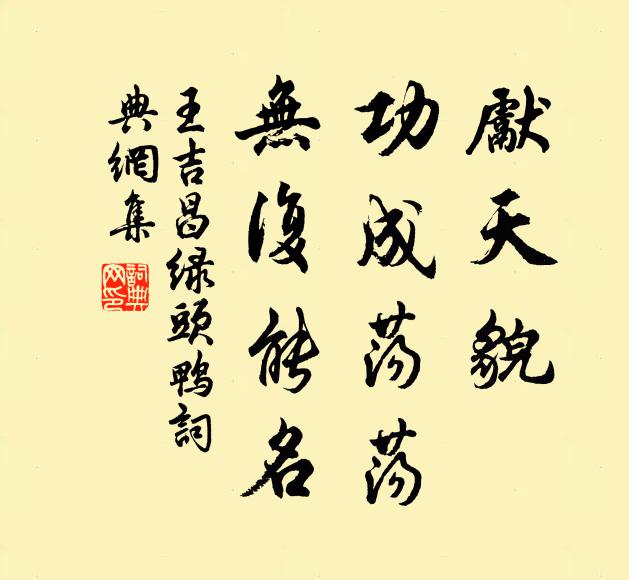 獻天貌
功成蕩蕩
無復能名
王吉昌绿頭鴨詞
典網集
詞典網印